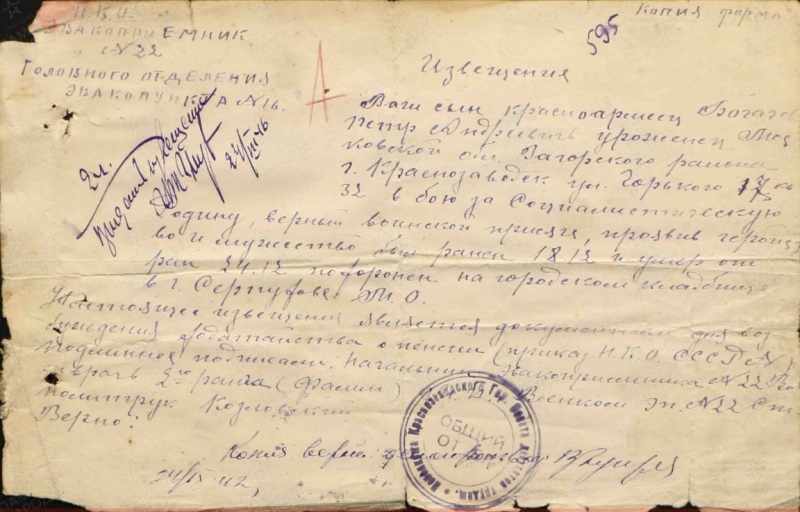 Н.К.О.
ЭВАКОПРИЕМНИК
№22
ГОЛОВНОГО ОТДЕЛЕНИЯ
ЭВАКОПУНКТА №16.
595
Копия форма
Извещения
Ваш сын красноармеец Богачев
Петр Андреевич уроженец Мос
ковской обл. Загорского района
г. Краснозаводск ул. Горького кв
32 в бою за Социалистическую
Родину, верный воинской присяге, проявив геройст
во и мужество был ранен 18.12 и умер от
ран 24.12 похоронен на городском кладбище
в г. Серпухове М.О.
Настоящее извещение является документом для воз
буждения ходатайства о пенсии (приказ Н.К.О. СССР №)
подлинное подписали: Начальник Эвакоприемника №22 Во
врач 2го ранга (Фамин) Военком эп. №22 Ст.
политрук Козловский
Верно:
Копия верна:
24/IV 42,
ОБЩИЙ
ОТ